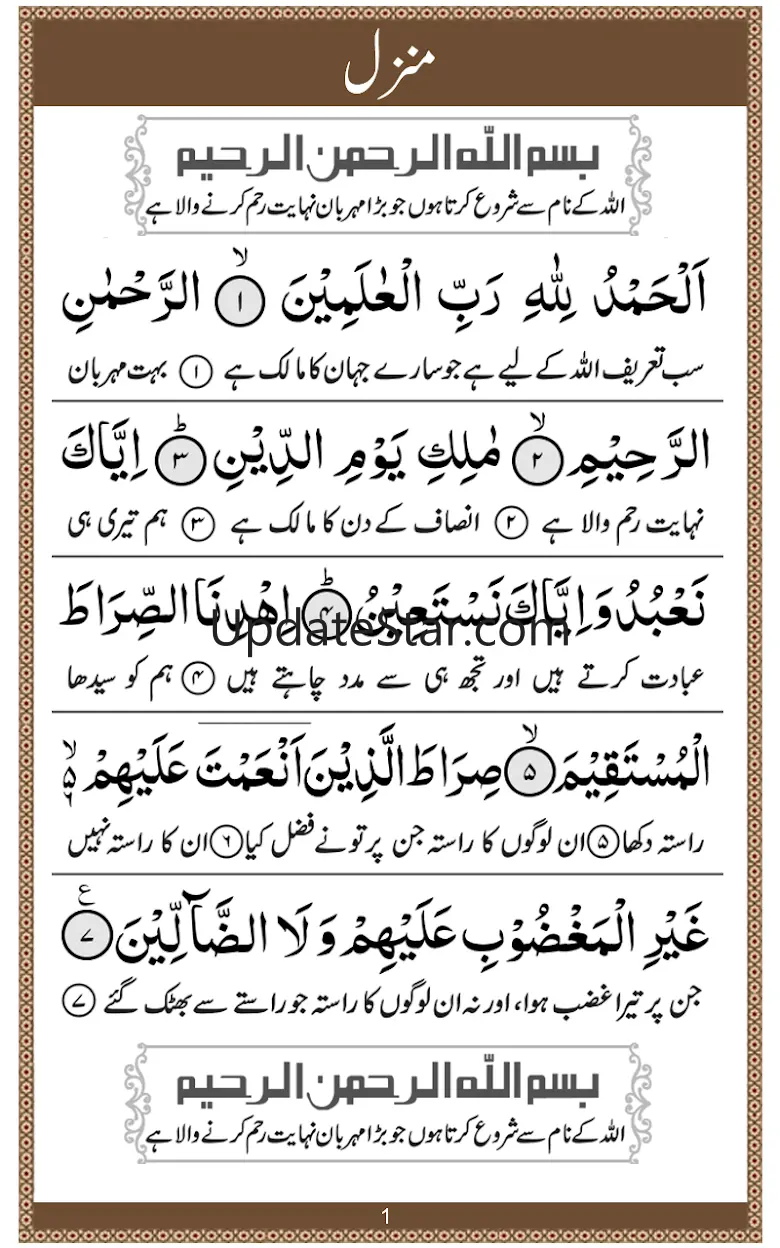 منزل
بسم الله الرحمن الرحيم
اللہ کے نام سے شروع کرتا ہوں جو بڑا مہربان نہایت رحم کرنے والا ہے
اَلْحَمْدُ لِلّٰهِ رَبِّ الْعٰلَمِيْنَ ۙ﴿۱﴾ الرَّحْمٰنِ
سب تعریف اللہ کے لیے ہے جو سارے جہان کا مالک ہے ﴿۱﴾ بہت مہربان
الرَّحِيْمِ ۙ﴿۲﴾ مٰلِكِ يَوْمِ الدِّيْنِ ؕ﴿۳﴾ اِيَّاكَ
نہایت رحم والا ہے ﴿۲﴾ انصاف کے دن کا مالک ہے ﴿۳﴾ ہم تیری ہی
نَعْبُدُ وَ اِيَّاكَ نَسْتَعِيْنُ ؕ﴿۴﴾ اِهْدِنَا الصِّرَاطَ
UpdateStar.com
عبادت کرتے ہیں اور تجھ ہی سے مدد چاہتے ہیں ﴿۴﴾ ہم کو سیدھا
الْمُسْتَقِيْمَ ۙ﴿۵﴾ صِرَاطَ الَّذِيْنَ اَنْعَمْتَ عَلَيْهِمْ ۙ۬
راستہ دکھا ﴿۵﴾ ان لوگوں کا راستہ جن پر تو نے فضل کیا ﴿۶﴾ ان کا راستہ نہیں
غَيْرِ الْمَغْضُوْبِ عَلَيْهِمْ وَ لَا الضَّآلِّيْنَ ﴿۷﴾ ع
جن پر تیرا غضب ہوا، اور نہ ان لوگوں کا راستہ جو راستے سے بھٹک گئے ﴿۷﴾
بسم الله الرحمن الرحيم
اللہ کے نام سے شروع کرتا ہوں جو بڑا مہربان نہایت رحم کرنے والا ہے
1